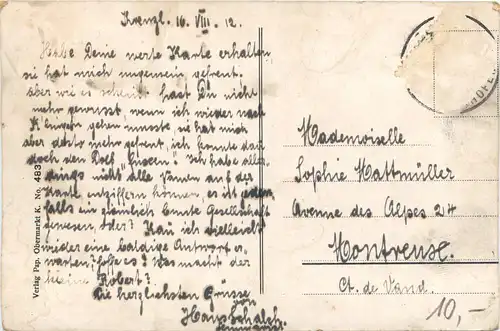 Kreuzl. 16. VIII. 12.
Habe Deine werte Karte erhalten,
sie hat mich ungemein gefreut.
Aber wie es scheint hast Du nicht
mehr gewusst, wenn ich wieder nach
gehen musste, sie hat mich
aber desto mehr gefreut, ich konnte
doch den Dolf "Grüsen". Ich habe aller
dings nicht alle Namen auf der
Karte entziffern können, es ist jeden
falls ein ziemlich bunte Gesellschaft
gewesen, oder? Kau ich vielleicht
wieder eine baldige Antwort er-
warten, Was macht der
kleine Robert?
Die herzlichsten Grüsse
von
Hans Schalch.
Verlag Pap. Obermarkt K. No. 483
Mademoiselle
Sophie Mattmüller
Avenue des Alpes 24
Montreux.
Ct. de Vaud.
10,-